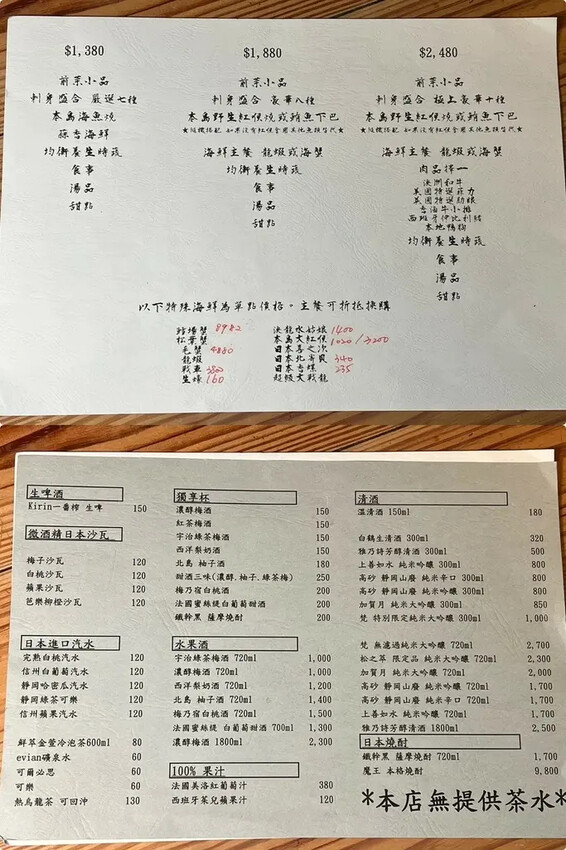 $1,380
前菜小品
刺身盛合 嚴選七種
本島海魚燒
蒜香海鮮
均衡養生時蔬
食事
湯品
甜點
$1,880
前菜小品
刺身盛合 豪華八種
本島野生紅條燒或鮪魚下巴
海鮮主餐 龍蝦或海蟹
均衡養生時蔬
食事
湯品
甜點
$2,480
前菜小品
刺身盛合 極上豪華十種
本島野生紅條燒或鮪魚下巴
海鮮主餐 龍蝦或海蟹
肉品擇一
澳洲和牛
美國特選菲力
美國特選肋眼
西班牙伊比利豬
本地鴨胸
均衡養生時蔬
食事
湯品
甜點
以下特殊海鮮為單點價格。主餐可折抵換購
松葉蟹
毛蟹 4880
龍蝦
戰車
生蠔 160
1400
本島大紅條 1020/3200
日本喜之次
日本北寄貝 340
日本香螺 235
超級大戰龍
生啤酒
Kirin一番榨 生啤 150
微酒精日本沙瓦
梅子沙瓦 120
白桃沙瓦 120
蘋果沙瓦 120
芭樂柳橙沙瓦 120
日本進口汽水
完熟白桃汽水 120
信州白葡萄汽水 120
靜岡哈密瓜汽水 120
靜岡綠茶可樂 120
信州蘋果汽水 120
鮮萃金萱冷泡茶600ml 80
evian礦泉水 60
可爾必思 60
可樂 60
熱烏龍茶 可回沖 130
獨享杯
濃醇梅酒 150
紅茶梅酒 150
宇治綠茶梅酒 150
西洋梨奶酒 150
北島 柚子酒 180
甜酒三味(濃醇.柚子.綠茶梅) 250
梅乃宿白桃酒 200
法國蜜絲緹白葡萄甜酒 200
鐵幹黑 薩摩燒酎 200
水果酒
宇治綠茶梅酒 720ml 1,000
濃醇梅酒 720ml 1,000
西洋梨奶酒 720ml 1,200
北島 柚子酒 720ml 1,400
梅乃宿白桃酒 720ml 1,500
法國蜜絲緹 白葡萄甜酒 700ml 1,300
濃醇梅酒 1800ml 2,300
100% 果汁
法國美洛紅葡萄汁 380
西班牙茱兒蘋果汁 120
清酒
溫清酒 150ml 180
白鶴生清酒 300ml 320
雅乃詩芳醇清酒 300ml 500
上善如水 純米吟釀 300ml 800
高砂 靜岡山廢 純米辛口 300ml 800
高砂 靜岡山廢 純米吟釀 300ml 800
加賀月 純米大吟釀 300ml 850
梵 特別限定純米大吟釀 300ml 1,000
梵 無濾過純米大吟釀 720ml 2,700
松之萃 限定品 純米大吟釀 720ml 2,300
加賀月 純米大吟釀 720ml 2,000
高砂 靜岡山廢 純米辛口 720ml 1,700
高砂 靜岡山廢 純米吟釀 720ml 1,700
上善如水 純米吟釀 720ml 1,700
雅乃詩芳醇清酒 1800ml 2,500
日本燒酎
鐵幹黑 薩摩燒酎 720ml 1,700
魔王 本格燒酎 9,800
*本店無提供茶水*